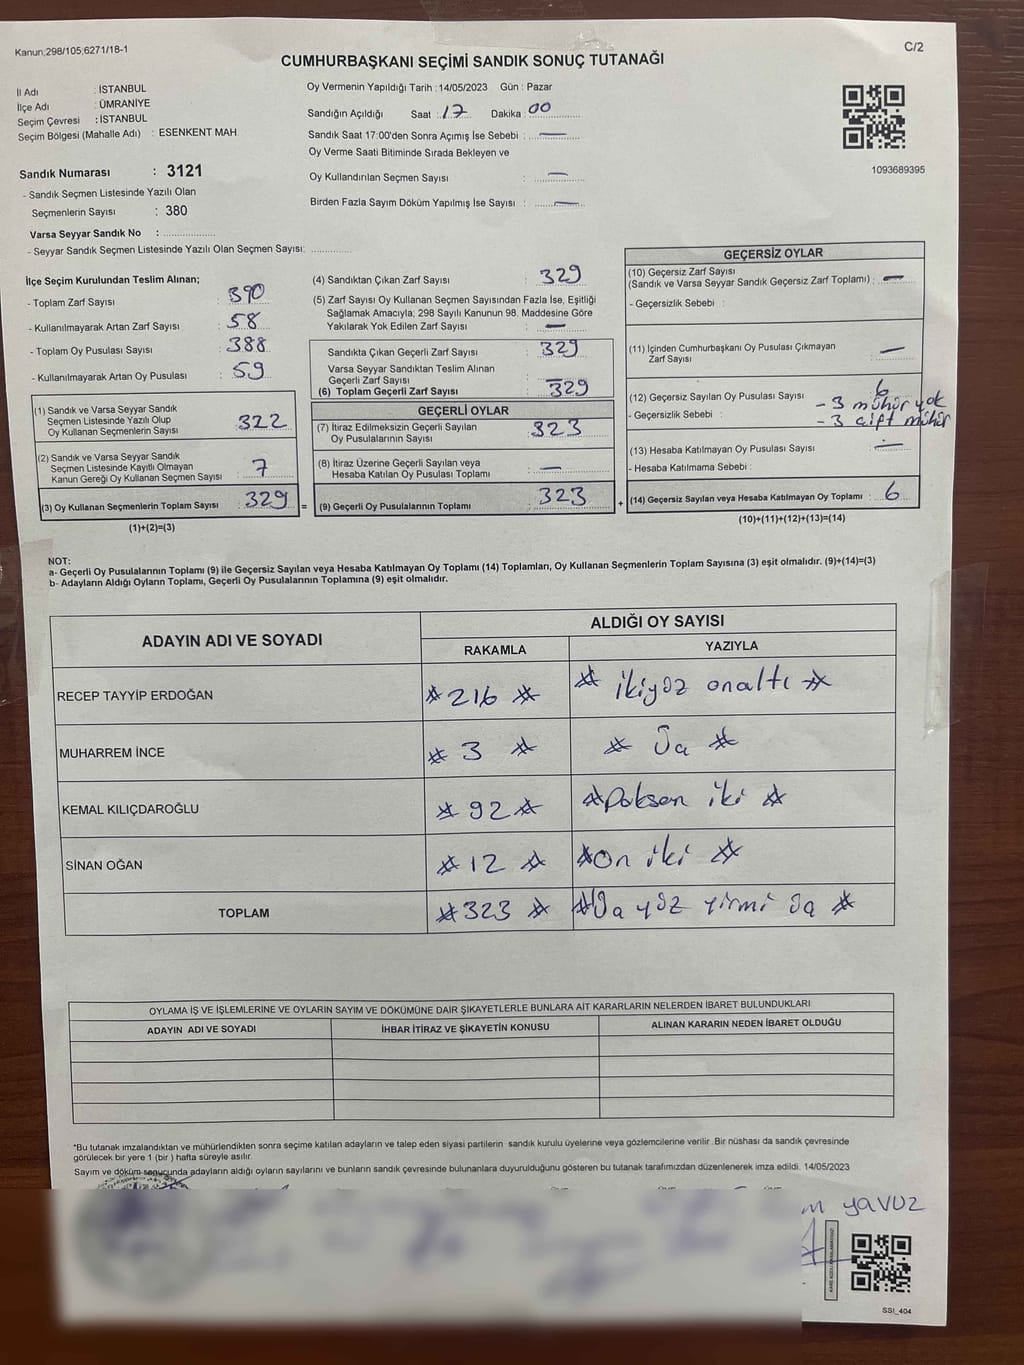 Kanun;298/105;6271/18-1
C/2
CUMHURBAŞKANI SEÇİMİ SANDIK SONUÇ TUTANAĞI
İl Adı : İSTANBUL
İlçe Adı : ÜMRANİYE
Seçim Çevresi : İSTANBUL
Seçim Bölgesi (Mahalle Adı) : ESENKENT MAH.
Oy Vermenin Yapıldığı Tarih : 14/05/2023 Gün : Pazar
Sandığın Açıldığı Saat : 17 Dakika : 00
Sandık Saat 17:00'den Sonra Açımış İse Sebebi : —
Oy Verme Saati Bitiminde Sırada Bekleyen ve
Oy Kullandırılan Seçmen Sayısı : —
Birden Fazla Sayım Döküm Yapılmış İse Sayısı : —
1093689395
Sandık Numarası : 3121
- Sandık Seçmen Listesinde Yazılı Olan
Seçmenlerin Sayısı : 380
Varsa Seyyar Sandık No : ....................
- Seyyar Sandık Seçmen Listesinde Yazılı Olan Seçmen Sayısı: ................
İlçe Seçim Kurulundan Teslim Alınan;
- Toplam Zarf Sayısı : 390
- Kullanılmayarak Artan Zarf Sayısı : 58
- Toplam Oy Pusulası Sayısı : 388
- Kullanılmayarak Artan Oy Pusulası : 59
(1) Sandık ve Varsa Seyyar Sandık
Seçmen Listesinde Yazılı Olup
Oy Kullanan Seçmenlerin Sayısı : 322
(2) Sandık ve Varsa Seyyar Sandık
Seçmen Listesinde Kayıtlı Olmayan
Kanun Gereği Oy Kullanan Seçmen Sayısı : 7
(3) Oy Kullanan Seçmenlerin Toplam Sayısı : 329 =
(1)+(2)=(3)
(4) Sandıktan Çıkan Zarf Sayısı : 329
(5) Zarf Sayısı Oy Kullanan Seçmen Sayısından Fazla İse, Eşitliği
Sağlamak Amacıyla; 298 Sayılı Kanunun 98. Maddesine Göre
Yakılarak Yok Edilen Zarf Sayısı : —
Sandıkta Çıkan Geçerli Zarf Sayısı : 329
Varsa Seyyar Sandıktan Teslim Alınan
Geçerli Zarf Sayısı : —
(6) Toplam Geçerli Zarf Sayısı : 329
GEÇERLİ OYLAR
(7) İtiraz Edilmeksizin Geçerli Sayılan
Oy Pusulalarının Sayısı : 323
(8) İtiraz Üzerine Geçerli Sayılan veya
Hesaba Katılan Oy Pusulası Toplamı : —
(9) Geçerli Oy Pusulalarının Toplamı : 323 +
GEÇERSİZ OYLAR
(10) Geçersiz Zarf Sayısı
(Sandık ve Varsa Seyyar Sandık Geçersiz Zarf Toplamı) : —
- Geçersizlik Sebebi :
(11) İçinden Cumhurbaşkanı Oy Pusulası Çıkmayan
Zarf Sayısı : —
(12) Geçersiz Sayılan Oy Pusulası Sayısı : 6
- Geçersizlik Sebebi : - 3 mühür yok
- 3 çift mühür
(13) Hesaba Katılmayan Oy Pusulası Sayısı : —
- Hesaba Katılmama Sebebi :
(14) Geçersiz Sayılan veya Hesaba Katılmayan Oy Toplamı : 6
(10)+(11)+(12)+(13)=(14)
NOT:
a- Geçerli Oy Pusulalarının Toplamı (9) ile Geçersiz Sayılan veya Hesaba Katılmayan Oy Toplamı (14) Toplamları, Oy Kullanan Seçmenlerin Toplam Sayısına (3) eşit olmalıdır. (9)+(14)=(3)
b- Adayların Aldığı Oyların Toplamı, Geçerli Oy Pusulalarının Toplamına (9) eşit olmalıdır.
ADAYIN ADI VE SOYADI
ALDIĞI OY SAYISI
RAKAMLA YAZIYLA
RECEP TAYYİP ERDOĞAN # 216 # # ikiyüz onaltı #
MUHARREM İNCE # 3 # # Üç #
KEMAL KILIÇDAROĞLU # 92 # # Doksan iki #
SİNAN OĞAN # 12 # # On iki #
TOPLAM # 323 # # Üç yüz yirmi üç #
OYLAMA İŞ VE İŞLEMLERİNE VE OYLARIN SAYIM VE DÖKÜMÜNE DAİR ŞİKAYETLERLE BUNLARA AİT KARARLARIN NELERDEN İBARET BULUNDUKLARI
ADAYIN ADI VE SOYADI İHBAR İTİRAZ VE ŞİKAYETİN KONUSU ALINAN KARARIN NEDEN İBARET OLDUĞU
*Bu tutanak imzalandıktan ve mühürlendikten sonra seçime katılan adayların ve talep eden siyasi partilerin sandık kurulu üyelerine veya gözlemcilerine verilir. Bir nüshası da sandık çevresinde
görülecek bir yere 1 (bir ) hafta süreyle asılır.
Sayım ve döküm sonucunda adayların aldığı oyların sayılarını ve bunların sandık çevresinde bulunanlara duyurulduğunu gösteren bu tutanak tarafımızdan düzenlenerek imza edildi. 14/05/2023
yavuz
SSI_404